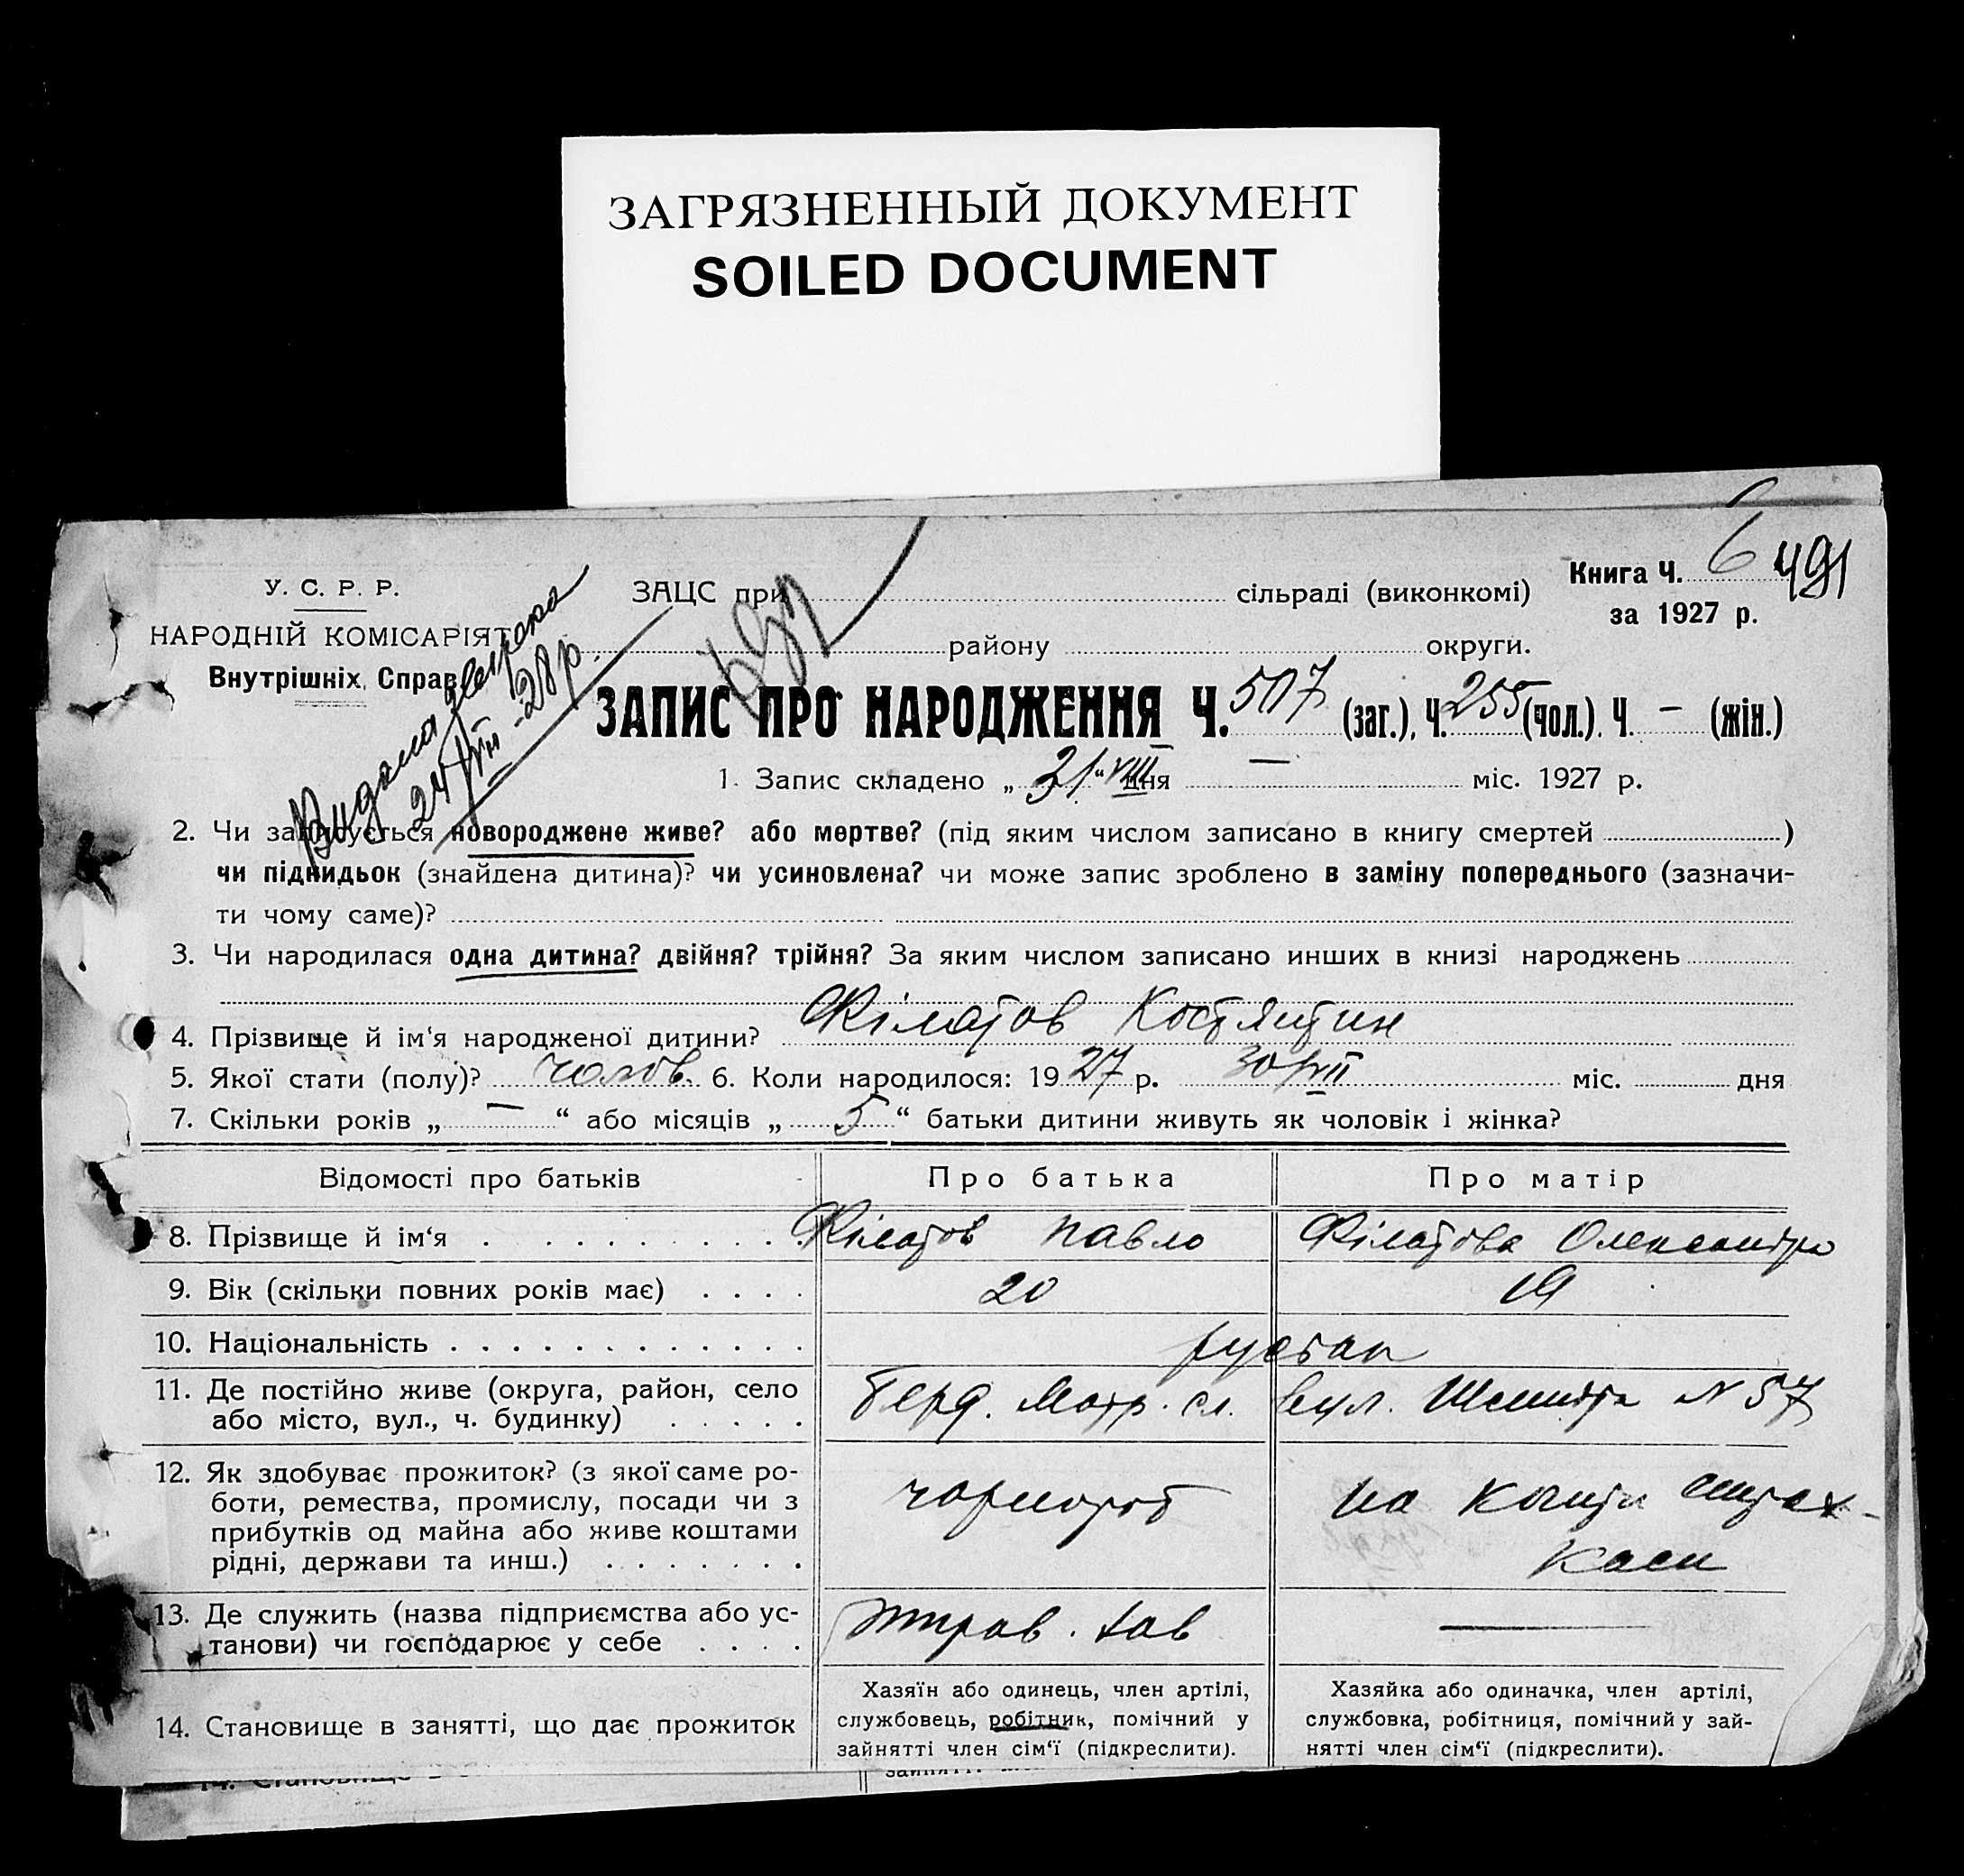 ЗАГРЯЗНЕННЫЙ ДОКУМЕНТ
SOILED DOCUMENT
Книга Ч. 6 491
за 1927 р.
У. С. Р. Р.
НАРОДНІЙ КОМІСАРІЯТ
Внутрішніх Справ
Видана
24/VII-28 р.
ЗАЦС при сільраді (виконкомі)
району округи.
ЗАПИС ПРО НАРОДЖЕННЯ Ч. 507 (заг.), Ч. 255 (чол.). Ч. – (жін.)
1. Запис складено „ 31 “ VIII дня — міс. 1927 р.
2. Чи записується новороджене живе? або мертве? (під яким числом записано в книгу смертей )
чи підкидьок (знайдена дитина)? чи усиновлена? чи може запис зроблено в заміну попереднього (зазначи-
ти чому саме)?
3. Чи народилася одна дитина? двійня? трійня? За яким числом записано инших в книзі народжень
4. Прізвище й ім‘я народженої дитини? Філатов Костянтин
5. Якої стати (полу)? чолов. 6. Коли народилося: 1927 р. міс. дня
7. Скільки років „ — “ або місяців „ 5 “ батьки дитини живуть як чоловік і жінка?
Відомості про батьків Про батька Про матір
8. Прізвище й ім‘я Філатов Павло Філатова Олександра
9. Вік (скільки повних років має) 20 19
10. Національність
11. Де постійно живе (округа, район, село
або місто, вул., ч. будинку) Берд. Матр. сл. вул. Шмидта N 57
12. Як здобуває прожиток? (з якої саме ро-
боти, ремества, промислу, посади чи з
прибутків од майна або живе коштами
рідні, держави та инш.) чорнороб на кошти страх-
каси
13. Де служить (назва підприємства або ус-
танови) чи господарює у себе —
14. Становище в занятті, що дає прожиток
Хазяїн або одинець, член артілі,
службовець, робітник, помічний у
зайнятті член сім‘ї (підкреслити).
Хазяйка або одиначка, член артілі,
службовка, робітниця, помічний у зай-
нятті член сім‘ї (підкреслити).